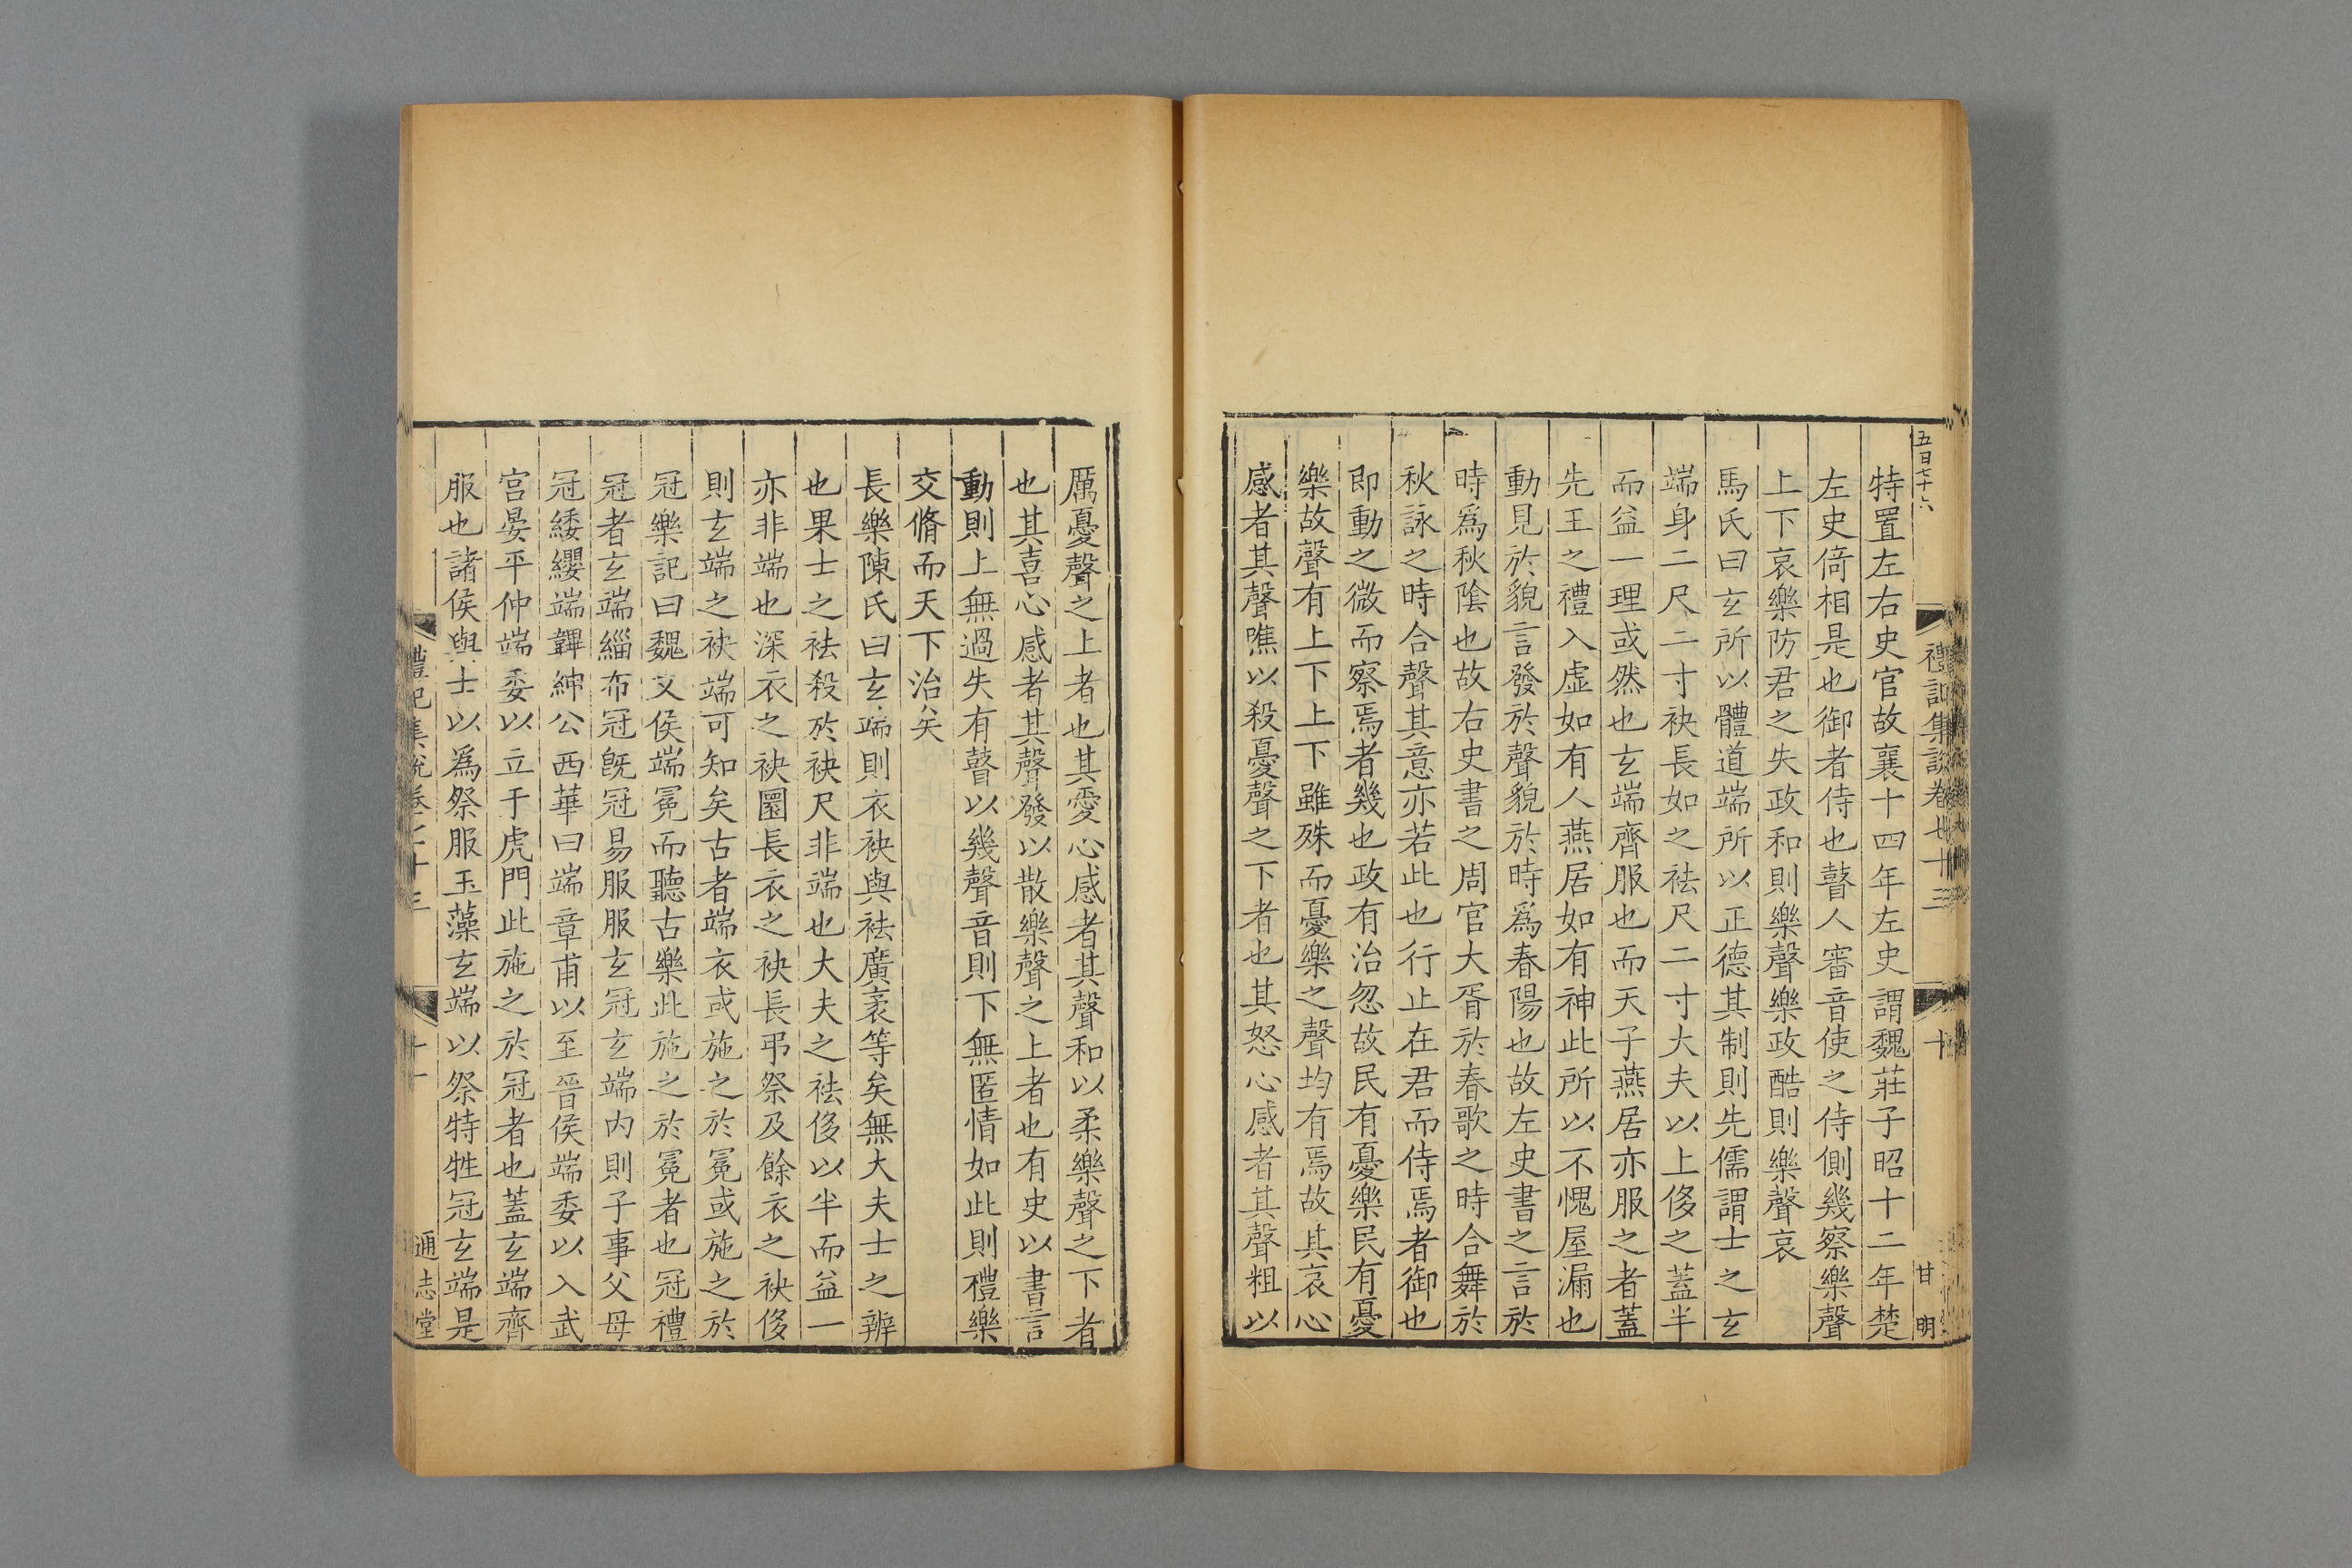 五百七十六
禮記集說卷七十三
十
甘明
特置左右史官故襄十四年左史謂魏莊子昭十二年楚
左史倚相是也御者侍也瞽人審音使之侍側幾察樂聲
上下哀樂防君之失政和則樂聲樂政酷則樂聲哀
馬氏曰玄所以體道端所以正德其制則先儒謂士之玄
端身二尺二寸袂長如之袪尺二寸大夫以上侈之蓋半
而益一理或然也玄端齊服也而天子燕居亦服之者蓋
先王之禮入虛如有人燕居如有神此所以不愧屋漏也
動見於貌言發於聲貌於時爲春陽也故左史書之言於
時爲秋陰也故右史書之周官大胥於春歌之時合舞於
秋詠之時合聲其意亦若此也行止在君而侍焉者御也
即動之微而察焉者幾也政有治忽故民有憂樂民有憂
樂故聲有上下上下雖殊而憂樂之聲均有焉故其哀心
感者其聲噍以殺憂聲之下者也其怒心感者其聲粗以
厲憂聲之上者也其愛心感者其聲和以柔樂聲之下者
也其喜心感者其聲發以散樂聲之上者也有史以書言
動則上無過失有瞽以幾聲音則下無匿情如此則禮樂
交脩而天下治矣
長樂陳氏曰玄端則衣袂與袪廣袤等矣無大夫士之辨
也果士之袪殺於袂尺非端也大夫之袪侈以半而益一
亦非端也深衣之袂圜長衣之袂長弔祭及餘衣之袂侈
則玄端之袂端可知矣古者端衣或施之於冕或施之於
冠樂記曰魏文侯端冕而聽古樂此施之於冕者也冠禮
冠者玄端緇布冠旣冠易服服玄冠玄端内則子事父母
冠緌纓端韠紳公西華曰端章甫以至晉侯端委以入武
宮晏平仲端委以立于虎門此施之於冠者也蓋玄端齊
服也諸侯與士以爲祭服玉藻玄端以祭特牲冠玄端是
禮記集說卷七十三
十一
通志堂